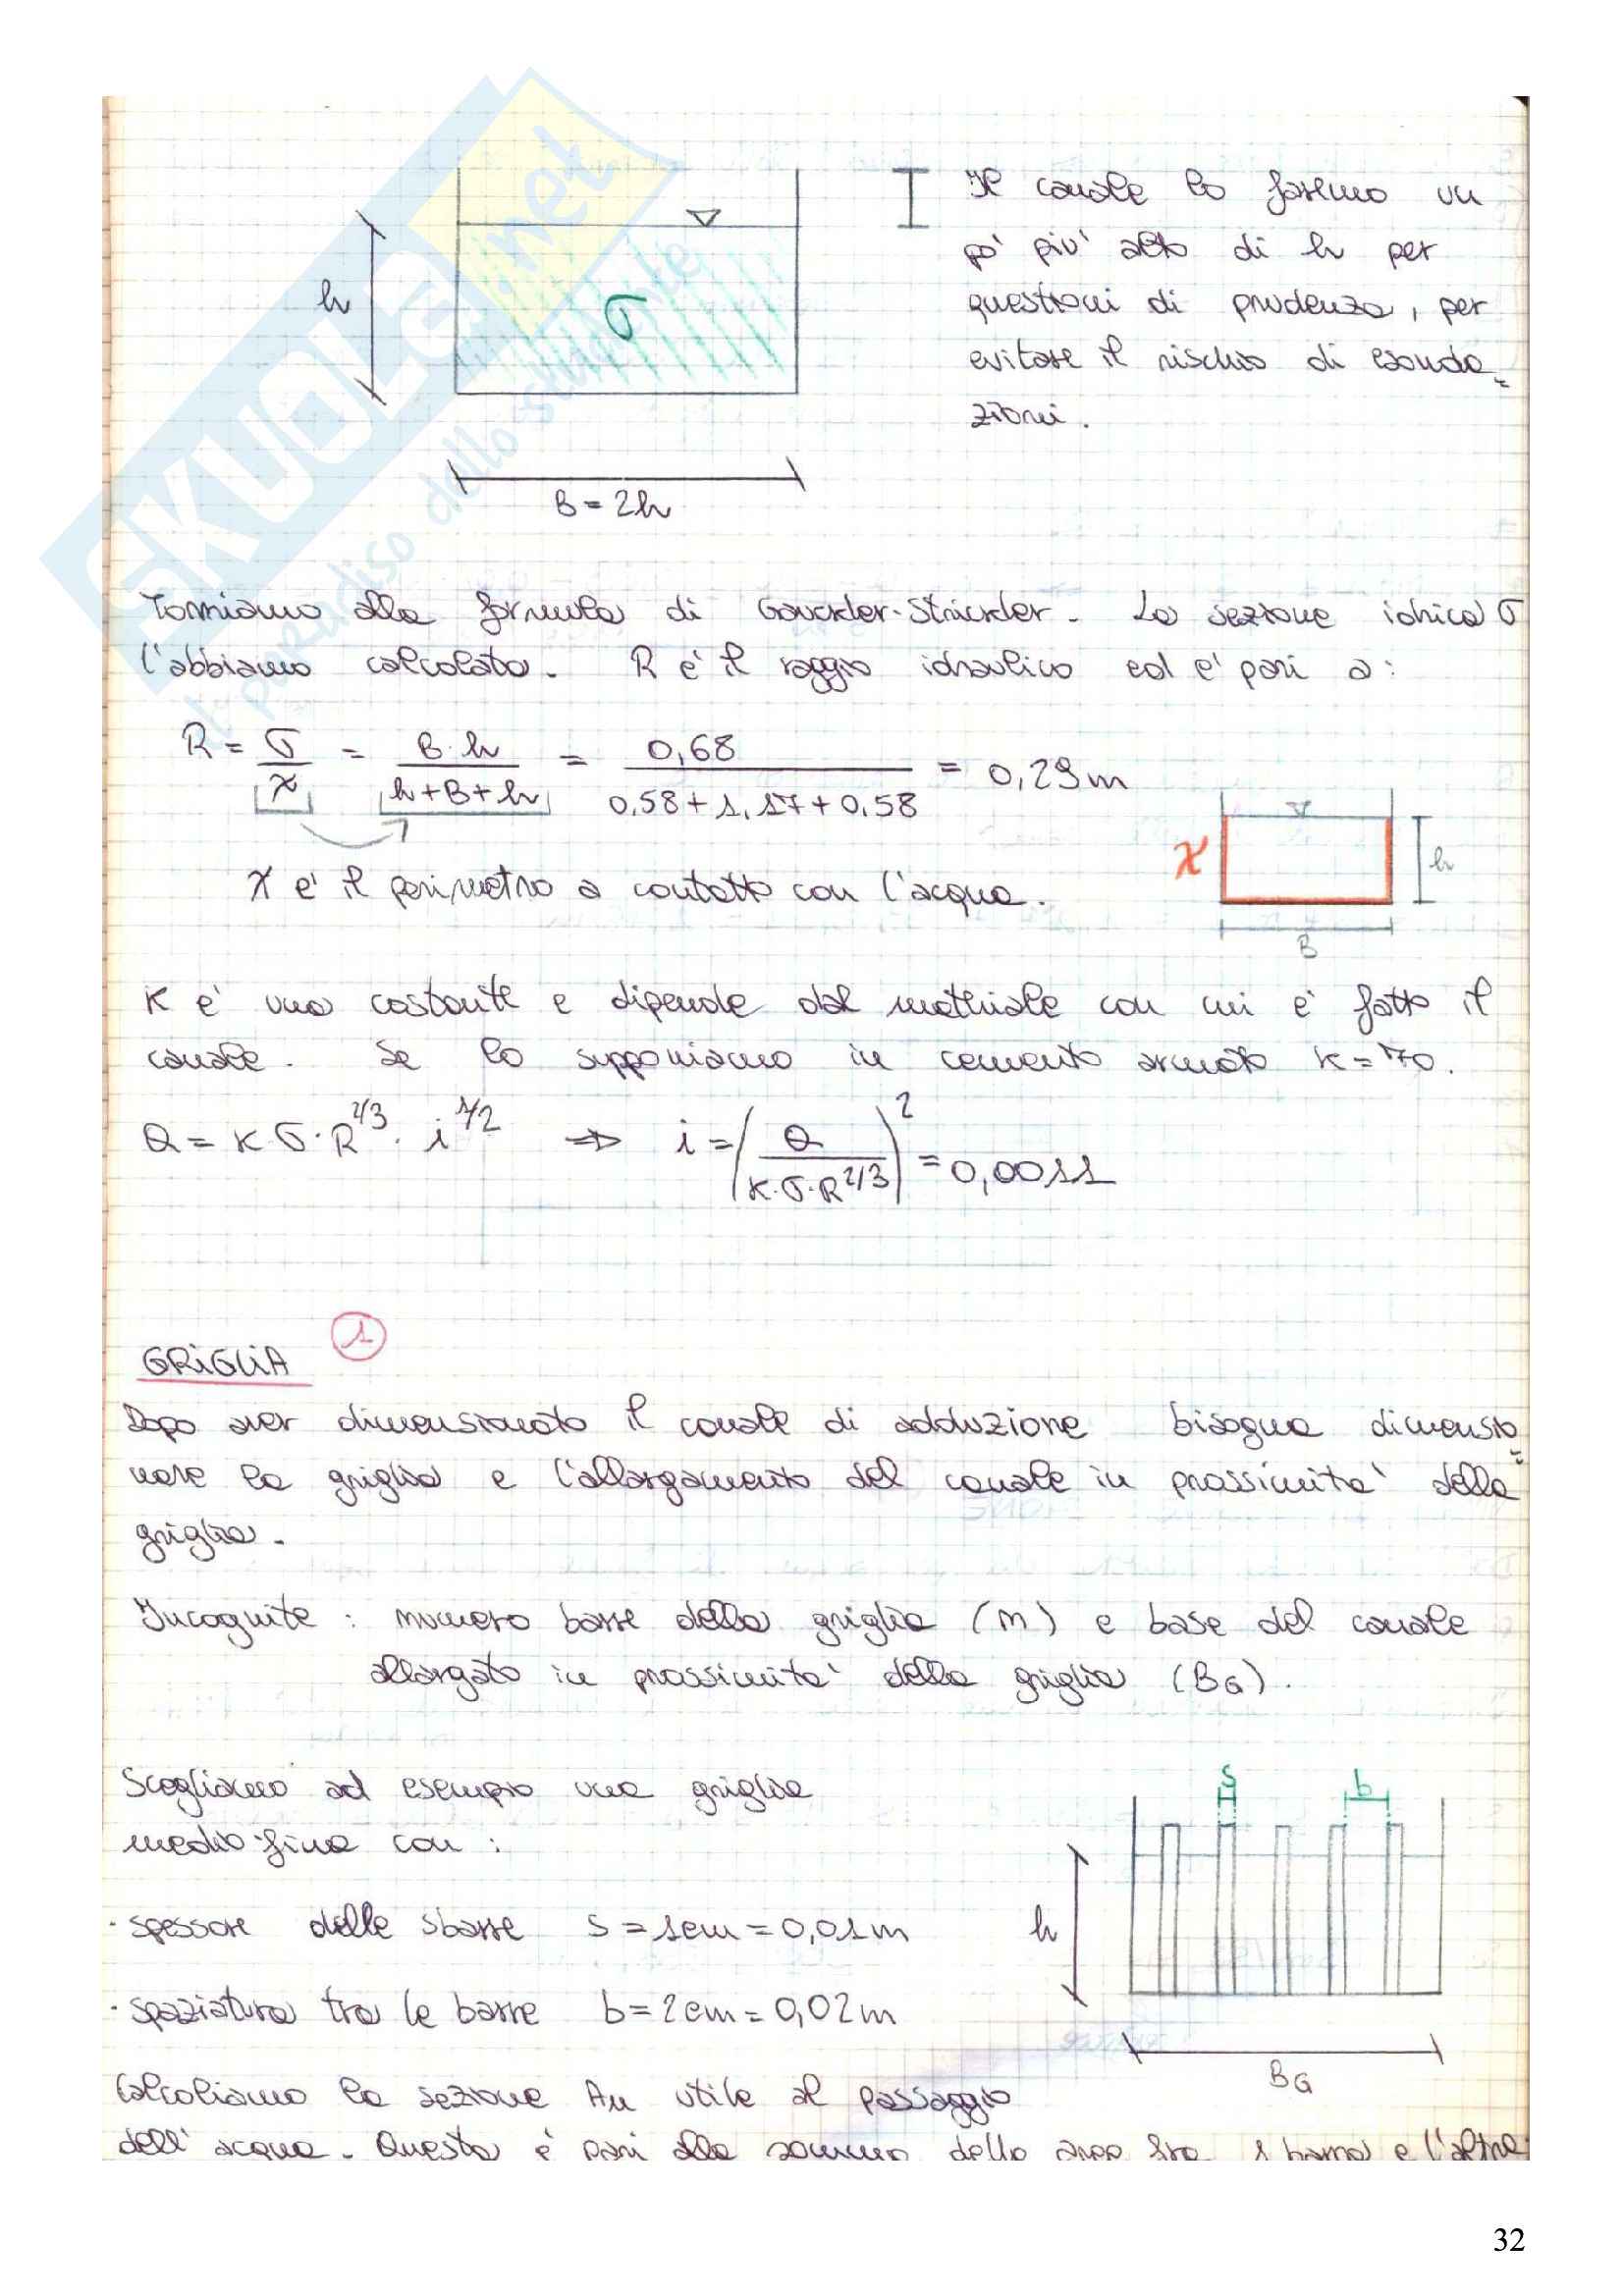 Il canale lo faremo un
po' piu' alto di h per
questioni di prudenza, per
evitare il rischio di esonda=
zioni.
h
σ
B = 2h
Torniamo alla formula di Gauckler-Strickler. La sezione idrica σ
l'abbiamo calcolata. R e' il raggio idraulico ed e' pari a:
R = σ/χ = B·h/(h+B+h) = 0,68/(0,58+1,17+0,58) = 0,29m
χ
h
B
χ e' il perimetro a contatto con l'acqua.
K e' una costante e dipende dal materiale con cui e' fatto il
canale. Se lo supponiamo in cemento armato K = 70.
Q = K·σ·R^2/3·i^1/2 ⇒ i = (Q/(K·σ·R^2/3))^2 = 0,0011
GRIGLIA 1
Dopo aver dimensionato il canale di adduzione bisogna dimensio=
nare la griglia e l'allargamento del canale in prossimita' della
griglia.
Incognite: numero barre della griglia (m) e base del canale
allargato in prossimita' della griglia (BG).
Scegliamo ad esempio una griglia
medio-fine con:
s
b
· spessore delle sbarre s = 1cm = 0,01m
h
· spaziatura tra le barre b = 2cm = 0,02m
BG
Calcoliamo la sezione Au utile al passaggio
dell'acqua. Questa è pari alla somma delle aree fra 1 barra e l'altra
32
SKUOLA.net
il paradiso dello studente